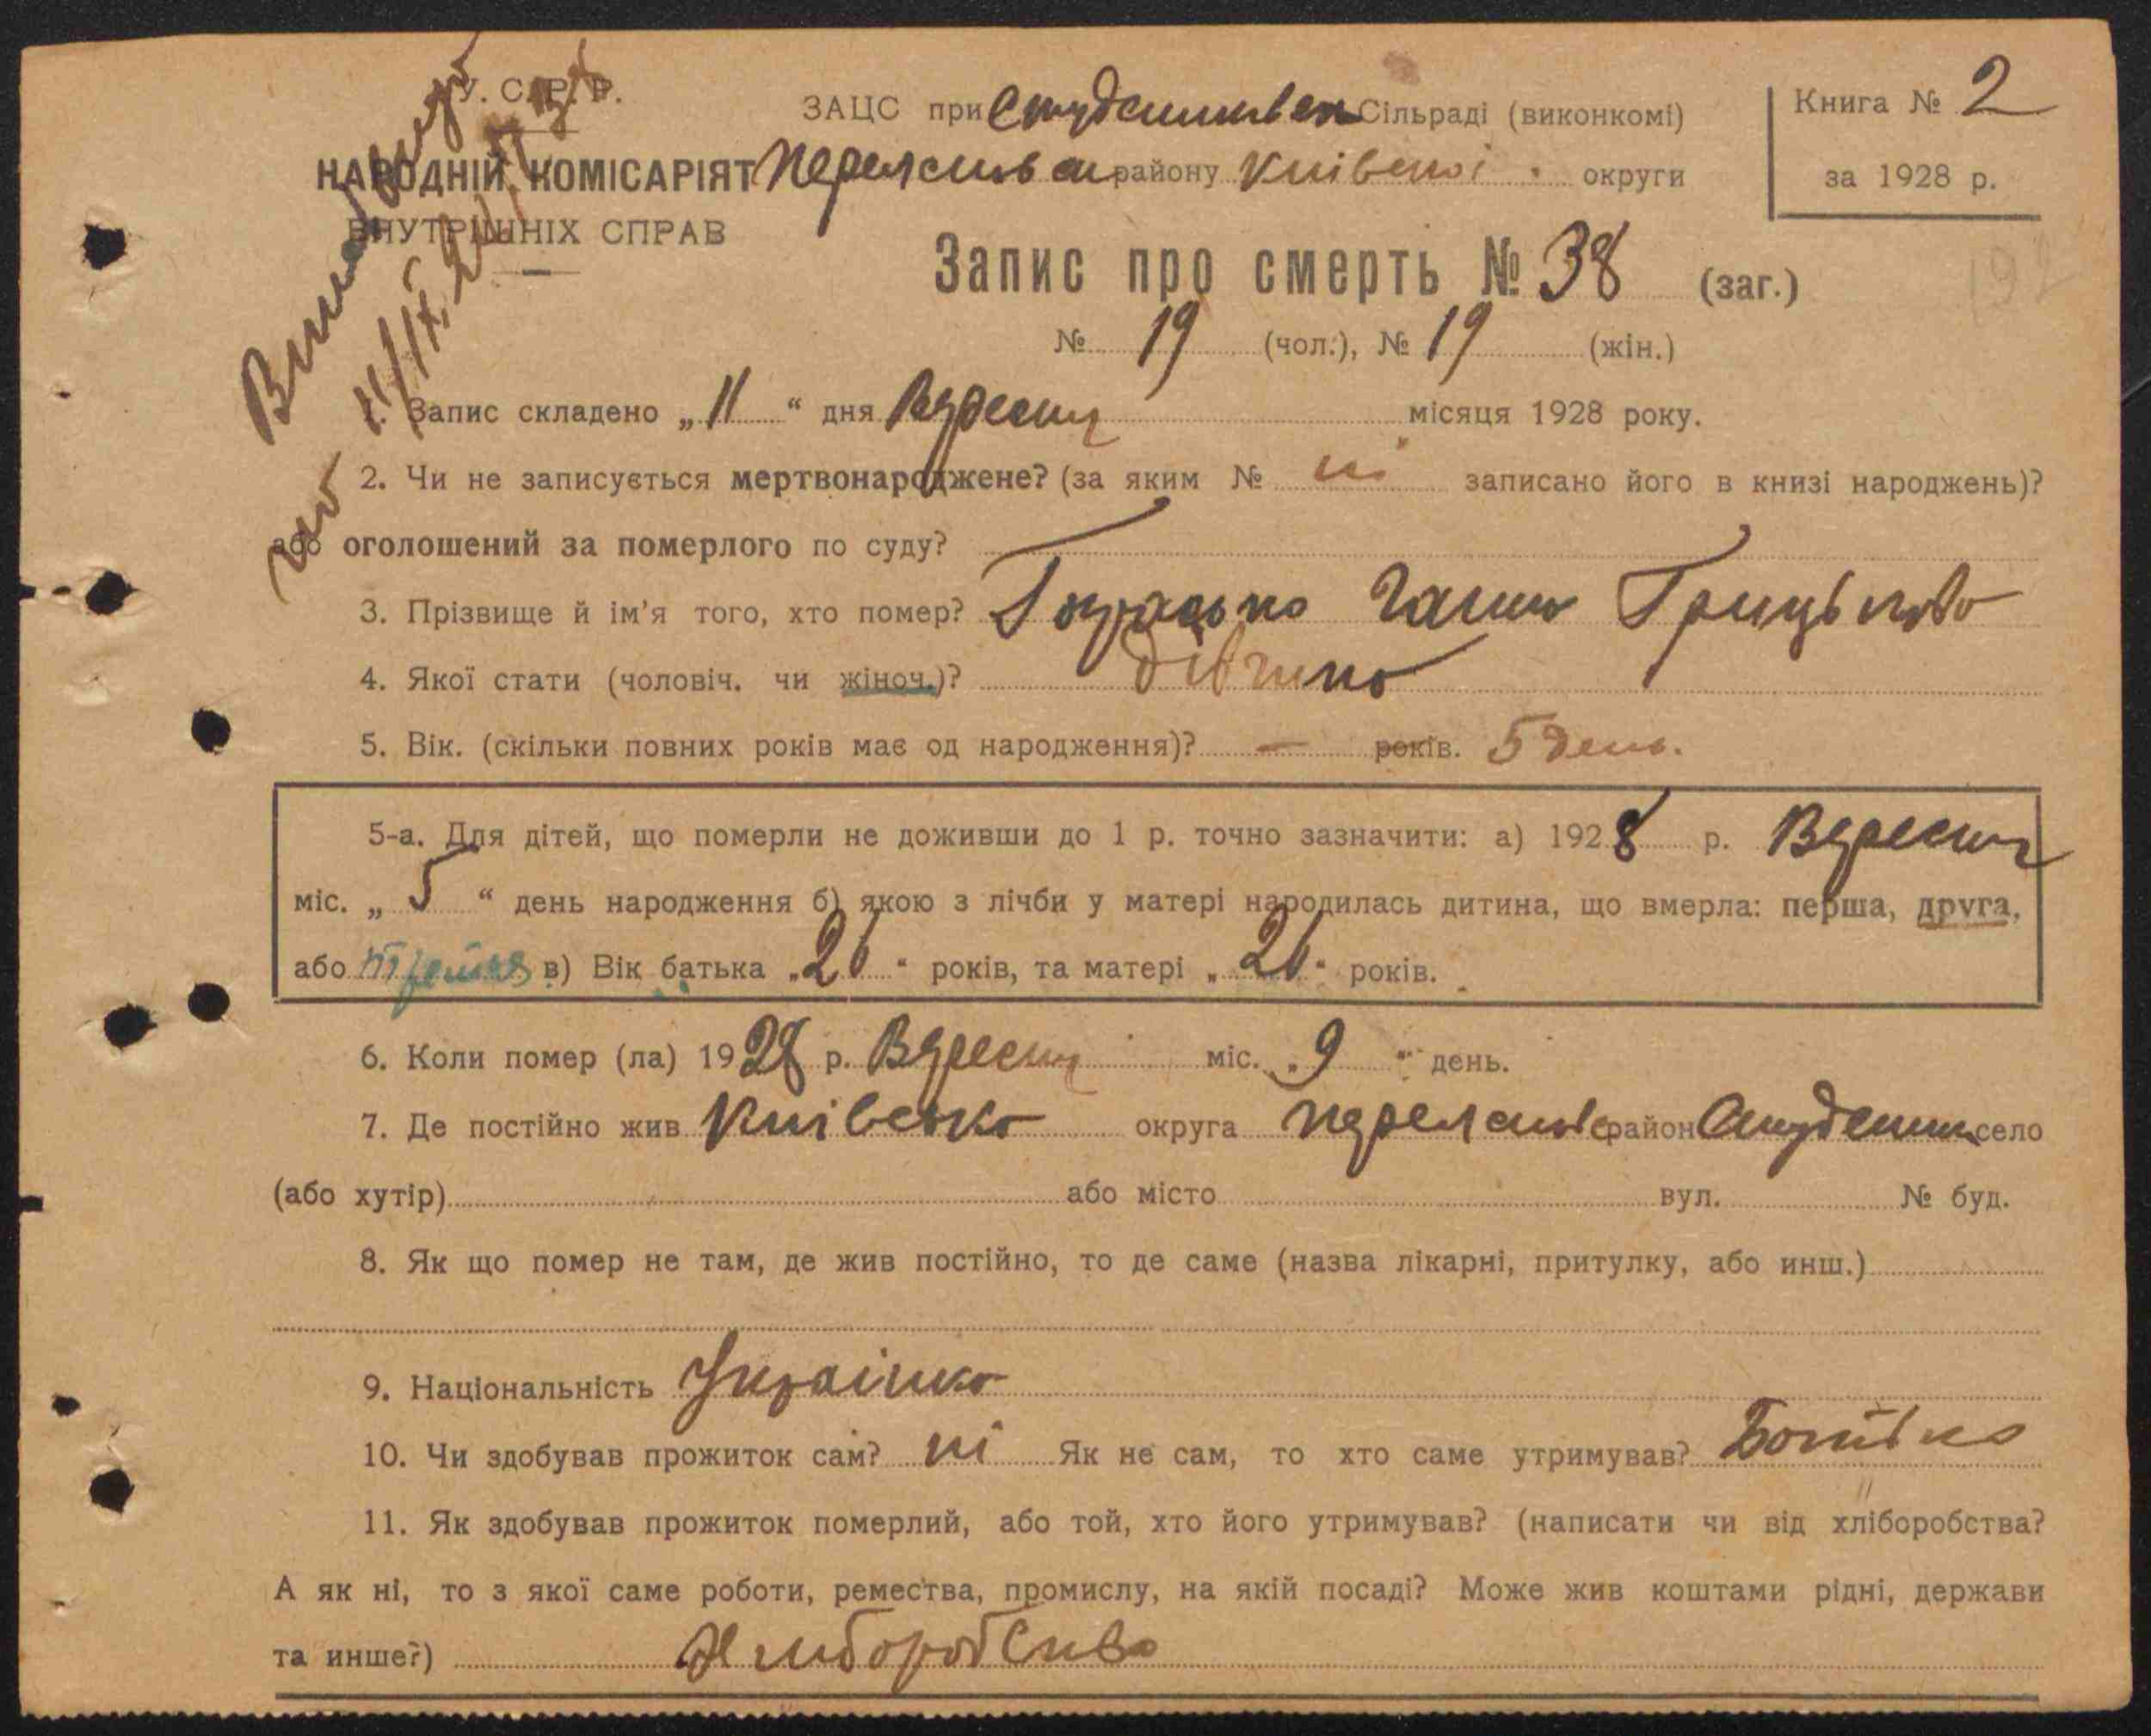 У. С. Р. Р.
ЗАЦС при Студениківск Сільраді (виконкомі)
Книга № 2
НАРОДНІЙ КОМІСАРІЯТ
Переяслівськ району Київської округи
за 1928 р.
ВНУТРІШНІХ СПРАВ
Запис про смерть № 38 (заг.)
192
№ 19 (чол.), № 19 (жін.)
1. Запис складено „ 11 “ дня Вересня місяця 1928 року.
2. Чи не записується мертвонароджене? (за яким № ні записано його в книзі народжень)?
або оголошений за померлого по суду?
3. Прізвище й ім’я того, хто помер? Ганна Грицьківна
4. Якої стати (чоловіч. чи жіноч.)? дівчина
5. Вік. (скільки повних років має од народження)? — років. 5 день.
5-а. Для дітей, що померли не доживши до 1 р. точно зазначити: а) 1928 р. Вересня
міс. „ 5 “ день народження б) якою з лічби у матері народилась дитина, що вмерла: перша, друга,
або третя в) Вік батька „ 26 “ років, та матері „ 26 “ років.
6. Коли помер (ла) 1928 р. Вересня міс. „ 9 “ день.
7. Де постійно жив Київська округа Переяслівс район Студеник село
(або хутір) або місто вул. № буд.
8. Як що помер не там, де жив постійно, то де саме (назва лікарні, притулку, або инш.)
9. Національність Українка
10. Чи здобував прожиток сам? ні Як не сам, то хто саме утримував? Батько
11. Як здобував прожиток померлий, або той, хто його утримував? (написати чи від хліборобства?
А як ні, то з якої саме роботи, ремества, промислу, на якій посаді? Може жив коштами рідні, держави
та инше?) Хліборобство